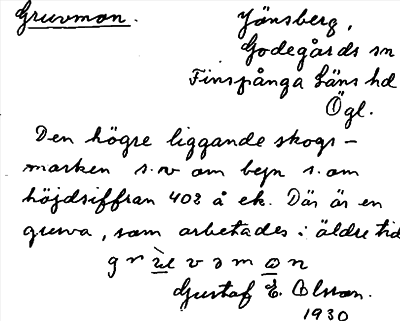 Gruvmon.
Jönsberg,
Godegårds sn
Finspånga Läns hd
Ögl.
Den högre liggande skogs-
marken s.v om byn s.om
höjdsiffran 402 å ek. Där är en
gruva, som arbetades i äldre tid
Gustaf E. Olsson.
1930